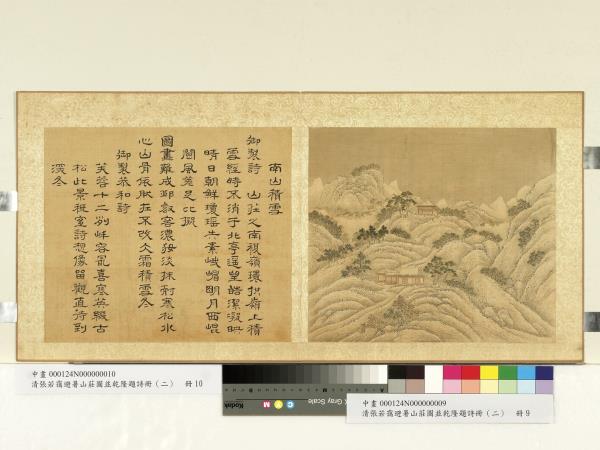 南山積雪
御製詩 山莊之南複嶺環拱嶺上積
雪經時不消于北亭遙望皓潔凝映
晴日朝鮮瓊瑤失素峨嵋明月西崐
閬風差足比擬
圖畫難成邱壑容濃粧淡抹耐寒松水
心山骨依然在不改冰霜積雪冬
御製恭和詩
芙蓉十二別峰容最喜寒英綴古
松此景秖堪詩想像留觀直待到
深冬
中畫 000124N000000010
清張若靄避暑山莊圖並乾隆題詩冊（二） 冊10
Kodak
C Y M
Gray Scale
中畫 000124N000000009
清張若靄避暑山莊圖並乾隆題詩冊（二） 冊9